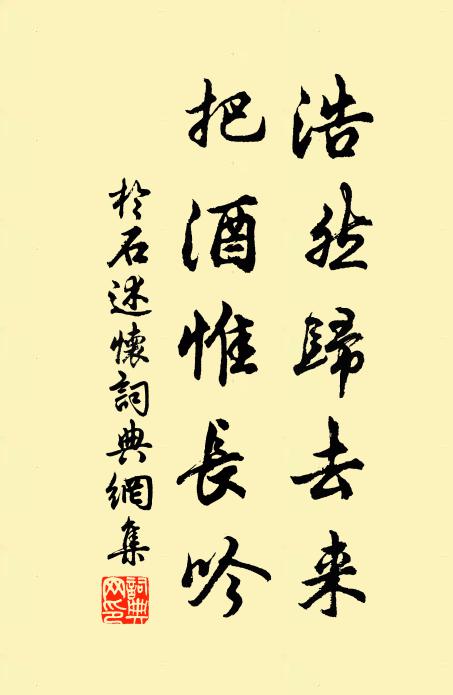 浩然歸去来
把酒惟長吟
於石述懷詞典網集
詞典網印